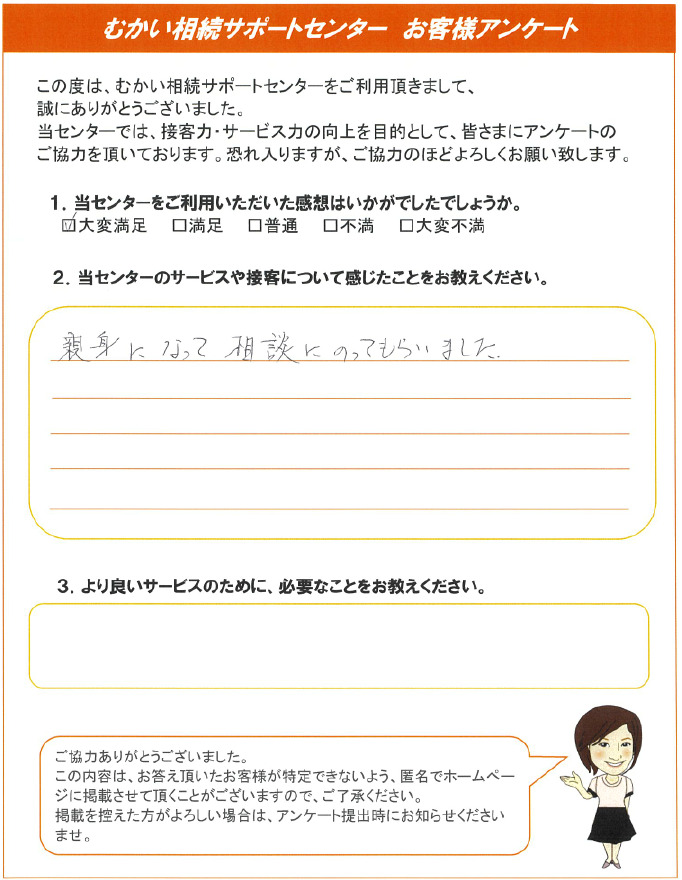 むかい相続サポートセンター　お客様アンケート
この度は、むかい相続サポートセンターをご利用頂きまして、
誠にありがとうございました。
当センターでは、接客力・サービス力の向上を目的として、皆さまにアンケートの
ご協力を頂いております。恐れ入りますが、ご協力のほどよろしくお願い致します。
１．当センターをご利用いただいた感想はいかがでしたでしょうか。
☑大変満足　□満足　□普通　□不満　□大変不満
２．当センターのサービスや接客について感じたことをお教えください。
親身になって相談にのってもらいました.
３．より良いサービスのために、必要なことをお教えください。
ご協力ありがとうございました。
この内容は、お答え頂いたお客様が特定できないよう、匿名でホームペー
ジに掲載させて頂くことがございますので、ご了承ください。
掲載を控えた方がよろしい場合は、アンケート提出時にお知らせください
ませ。